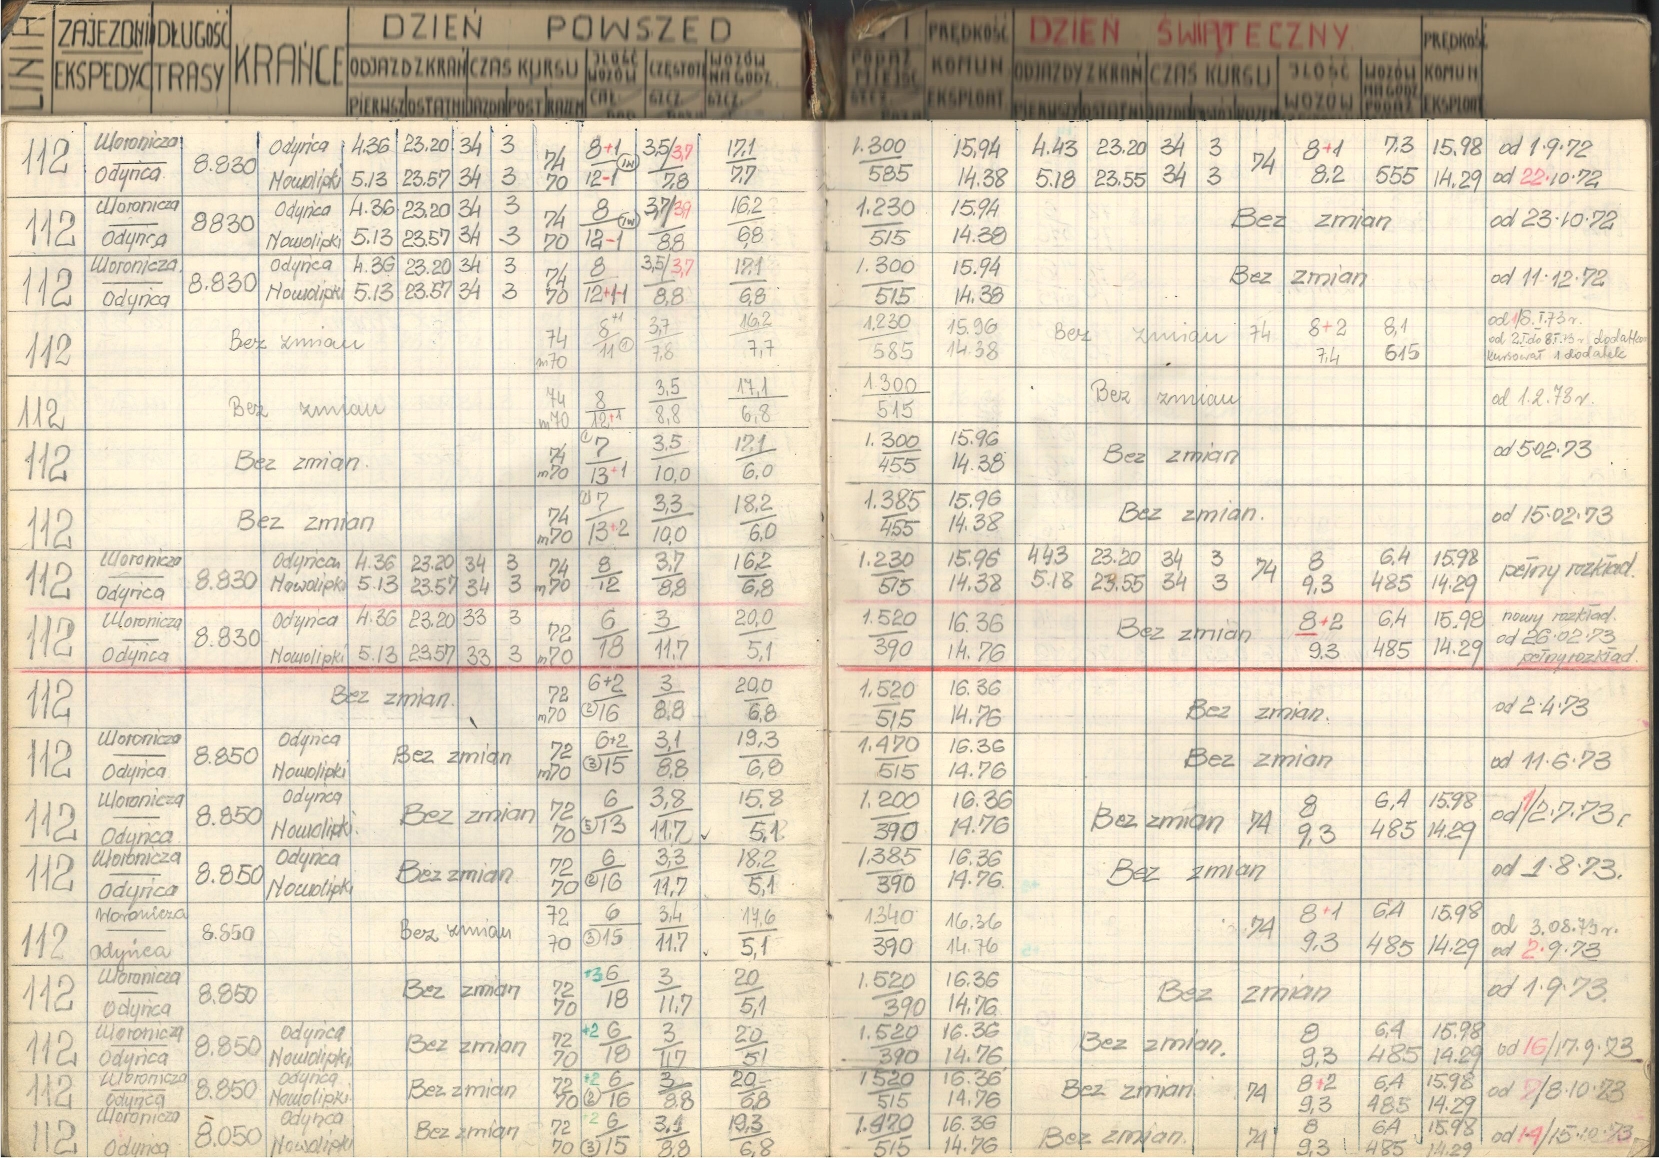 LINIA ZAJEZDNI DŁUGOŚĆ KRAŃCE DZIEŃ POWSZED PRĘDKOŚĆ DZIEŃ ŚWIĄTECZNY PRĘDKOŚ
EKSPEDYC TRASY ODJAZD Z KRAŃ CZAS KURSU ILOŚĆ WOZÓW CZĘSTOT WOZÓW NA GODZ. PODAŻ MIEJSC KOMUN ODJAZDY Z KRAŃ CZAS KURSU ILOŚĆ WOZÓW WOZÓW NA GODZ KOMUN
PIERWSZ OSTATNI JAZDA POST RAZEM SZCZ. SZCZ. SZCZ. EKSPLOAT. PIERWSZY OSTATNI EKSPLOAT
112 Woronicza 8.830 Odyńca 4.36 23.20 34 3 74 8+1 3,5/3,7 17,1 1.300 15,94 4.43 23.20 34 3 74 8+1 7.3 15,98 od 1.9.72
Odyńca Nowolipki 5.13 23.57 34 3 70 12-1 1w 7,8 7,7 585 14.38 5.18 23.55 34 3 8.2 555 14.29 od 22.10.72
112 Woronicza 8830 Odyńca 4.36 23.20 34 3 74 8 3,7/3,9 16,2 1.230 15.94 Bez zmian od 23.10.72
Odyńca Nowolipki 5.13 23.57 34 3 70 12-1 1w 8,8 6,8 515 14.38
112 Woronicza 8.830 Odyńca 4.36 23.20 34 3 74 8 3,5/3,7 17,1 1.300 15.94 Bez zmian od 11.12.72
Odyńca Nowolipki 5.13 23.57 34 3 70 8,8 6,8 515 14.38
112 Bez zmian 74 8+1 3,7 16,2 1.230 15.96 Bez zmian 74 8+2 8,1 od 1/8.I.73r.
m70 11 1 7,8 7,7 585 14.38 7,4 615 od 2.I do 8.I.73r. dodatkowo
kursował 1 dodatek
112 Bez zmian 74 8 3,5 17,1 1.300 Bez zmian od 1.2.73r.
m70 12+1 8,8 6,8 515
112 Bez zmian. 74 1 7 3,5 17,1 1.300 15.96 Bez zmian od 5.02.73
m70 13+1 10,0 6,0 455 14.38
112 Bez zmian 74 7 3,3 18,2 1.385 15.96 Bez zmian. od 15.02.73
m70 13+2 10,0 6,0 455 14.38
112 Woronicza 8.830 Odyńca 4.36 23.20 34 3 74 8 3,7 16,2 1.230 15.96 4.43 23.20 34 3 74 8 6,4 15.98 pełny rozkład.
Odyńca Nowolipki 5.13 23.57 34 3 m70 12 8,8 6,8 515 14.38 5.18 23.55 34 3 9,3 485 14.29
112 Woronicza 8.830 Odyńca 4.36 23.20 33 3 72 6 3 20,0 1.520 16.36 Bez zmian 8+2 6,4 15.98 nowy rozkład.
Odyńca Nowolipki 5.13 23.57 33 3 m70 18 11,7 5,1 390 14.76 9.3 485 14.29 od 26.02.73
pełny rozkład.
112 Bez zmian. 72 6+2 3 20,0 1.520 16.36 Bez zmian. od 2.4.73
m70 2 16 8.8 6,8 515 14.76
112 Woronicza 8.850 Odyńca Bez zmian 72 6+2 3,1 19,3 1.470 16.36 Bez zmian od 11.6.73
Odyńca Nowolipki m70 3 15 8,8 6,8 515 14.76
112 Woronicza 8.850 Odyńca Bez zmian 72 6 3,8 15,8 1.200 16.36 Bez zmian 74 8 6,4 15.98 od 1/2.7.73r
Odyńca Nowolipki. 70 5 13 11,7 5,1 390 14.76 9,3 485 14.29
112 Woronicza 8.850 Odyńca Bez zmian 72 6 3,3 18,2 1.385 16.36 Bez zmian od 1.8.73.
Odyńca Nowolipki 70 2 16 11,7 5,1 390 14.76.
112 Woronicza 8.850 Bez zmian 72 6 3,4 17,6 1340 16.36 74 8+1 6,4 15.98 od 3.08.73r.
Odyńca 70 3 15 11.7 5,1 390 14.76 9.3 485 14.29 od 2.9.73
112 Woronicza 8.850 Bez zmian 72 +3 6 3 20 1.520 16.36 Bez zmian od 1.9.73.
Odyńca 70 18 11,7 5,1 390 14.76
112 Woronicza 8.850 Odyńca Bez zmian 72 +2 6 3 20 1.520 16.36 Bez zmian. 8 6,4 15.98 od 16/17.9.73
Odyńca Nowolipki. 70 18 390 14.76 9,3 485 14.29
112 Woronicza 8.850 Odyńca Bez zmian 72 +2 6 3 20 1520 16.36 Bez zmian. 74 8+2 6,4 15.98 od 7/8.10.73
Odyńca Nowolipki. 70 2 16 8,8 6,8 515 14.76 9,3 485 14.29
112 Woronicza 8.050 Odyńca Bez zmian 72 +2 6 3,1 19,3 1.470 16.36 Bez zmian. 74 8 6,4 15.98 od 14/15.10.73
Odyńca Nowolipki 70 3 15 8,8 6,8 515 14.76 9,3 485 14.29